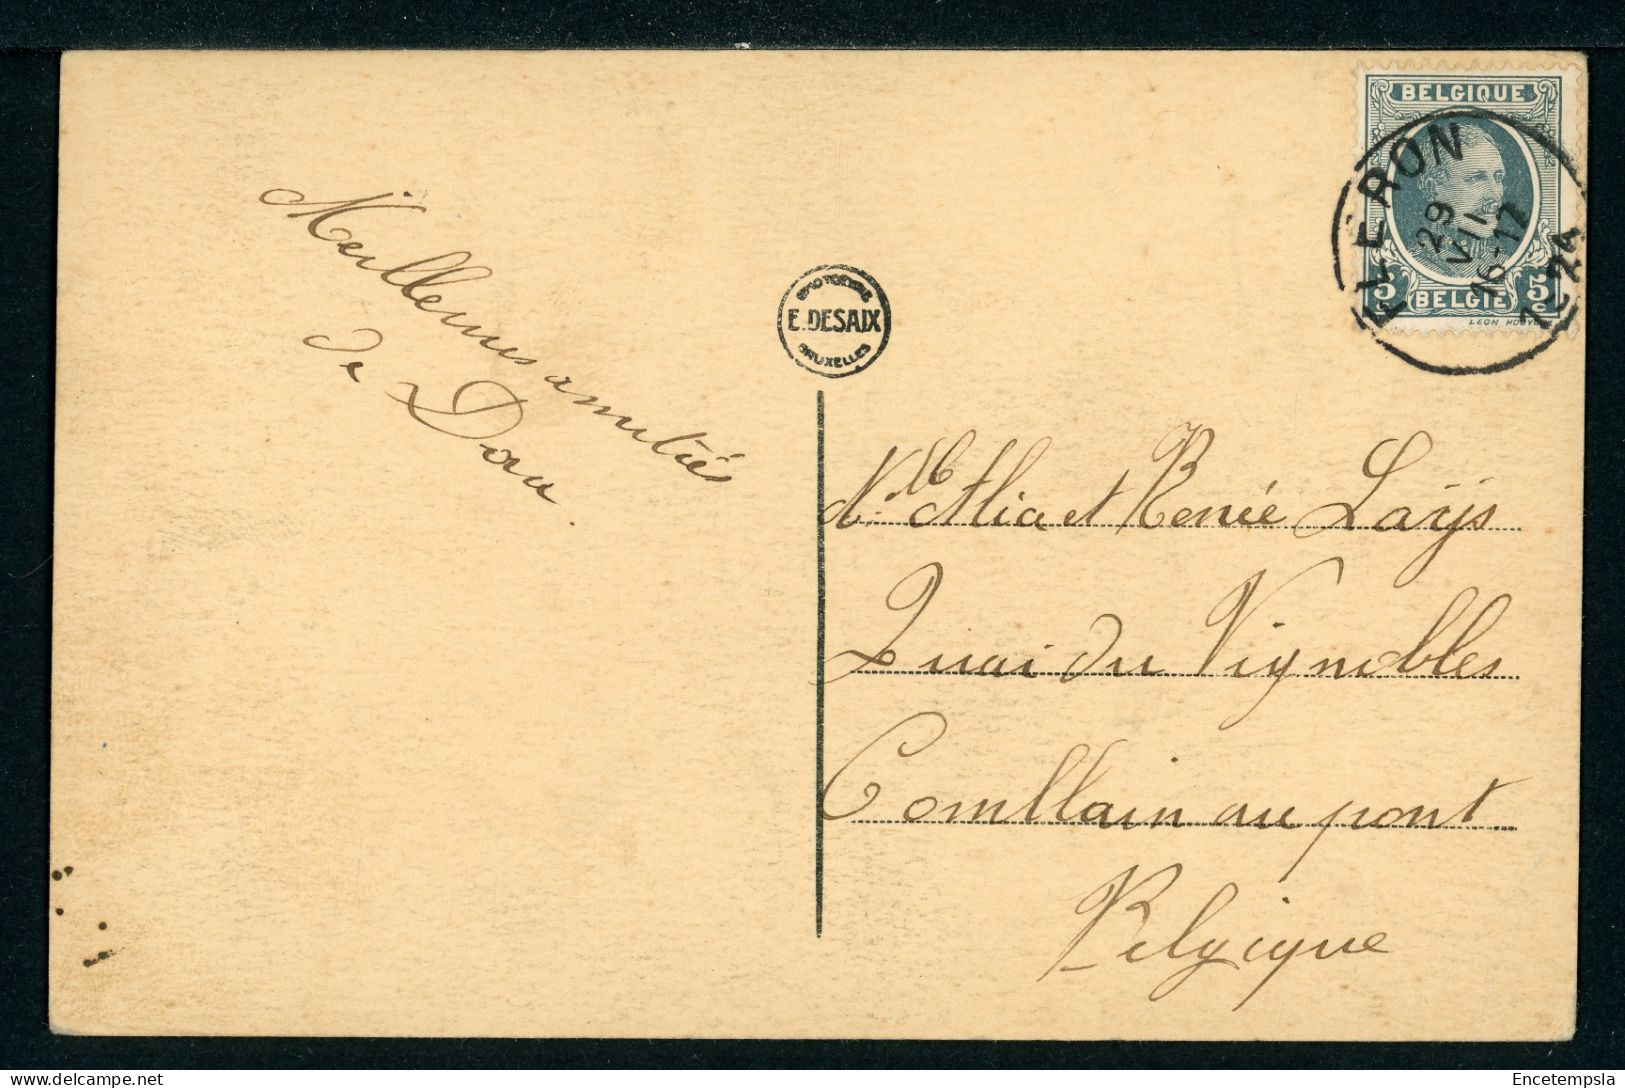 Meilleures amitiés
de Dou.
PHOTOTYPIE
E. DESAIX
BRUXELLES
BELGIQUE
5 BELGIE 5
FLÉRON
29
VII
16-17
1924
Alia et Renée Laÿs
Quai du Vignobles
Comblain au pont
Belgique
Encetempsla